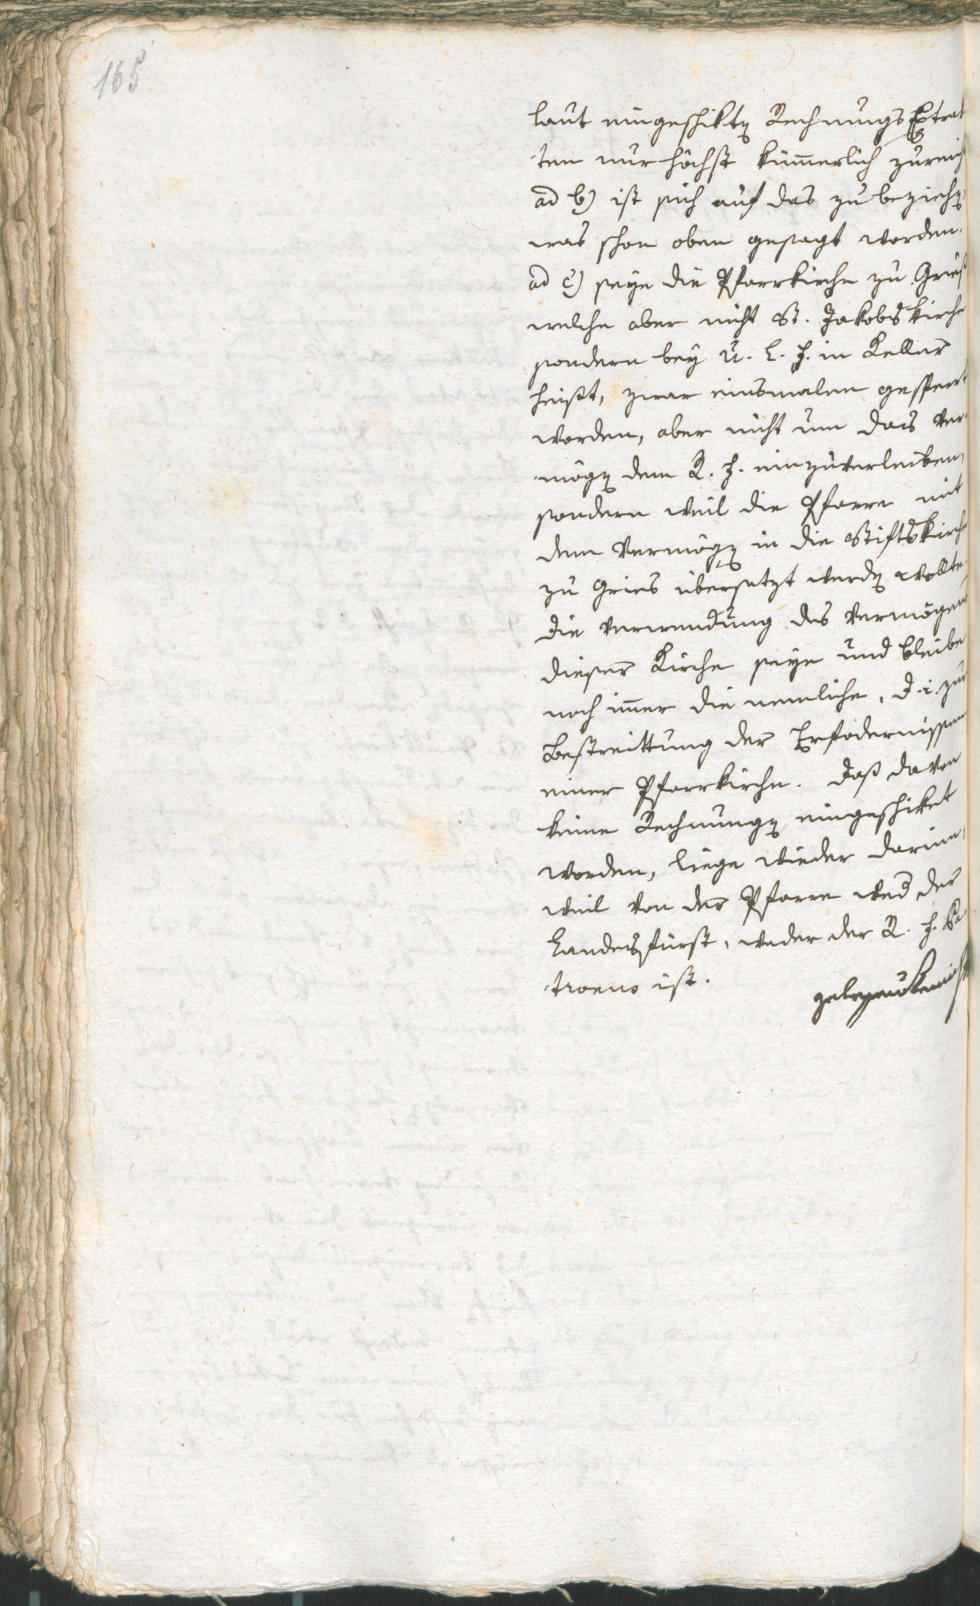 165
laut eingeschikten Rechnungs Extrak
ten nur höchst kümmerlich zureich
ad b) ist sich auf das zu beziehen,
was schon oben gesagt worden.
ad c) seye die Pfarrkirche zu Gries
welche aber nicht St. Jakobskirche
sondern bey U. L. F. in Keller
heißt, zwar einsmalen gesperrt
worden, aber nicht um das Ver
mögen dem R. F. einzuverleiben,
sondern weil die Pfarre mit
dem Vermögen in die Stiftskirche
zu Gries übersetzt werden wollte.
die Verwendung des Vermögens
dieser Kirche seye und bleibe
noch immer die nemliche, d. i. zur
Bestreittung der Erfodernissen
einer Pfarrkirche. Daß davon
keine Rechnungen eingeschiket
worden, liege wieder darinn,
weil von der Pfarre wed der
Landesfürst, weder der R. F. Pa
tronus ist.